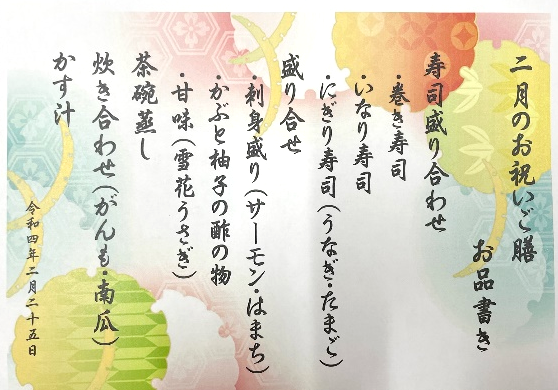 二月のお祝いご膳
お品書き
寿司盛り合わせ
・巻き寿司
・いなり寿司
・にぎり寿司(うなぎ・たまご)
盛り合せ
・刺身盛り(サーモン・はまち)
・かぶと柚子の酢の物
・甘味(雪花うさぎ)
茶碗蒸し
炊き合わせ(がんも・南瓜)
かす汁
令和四年二月二十五日